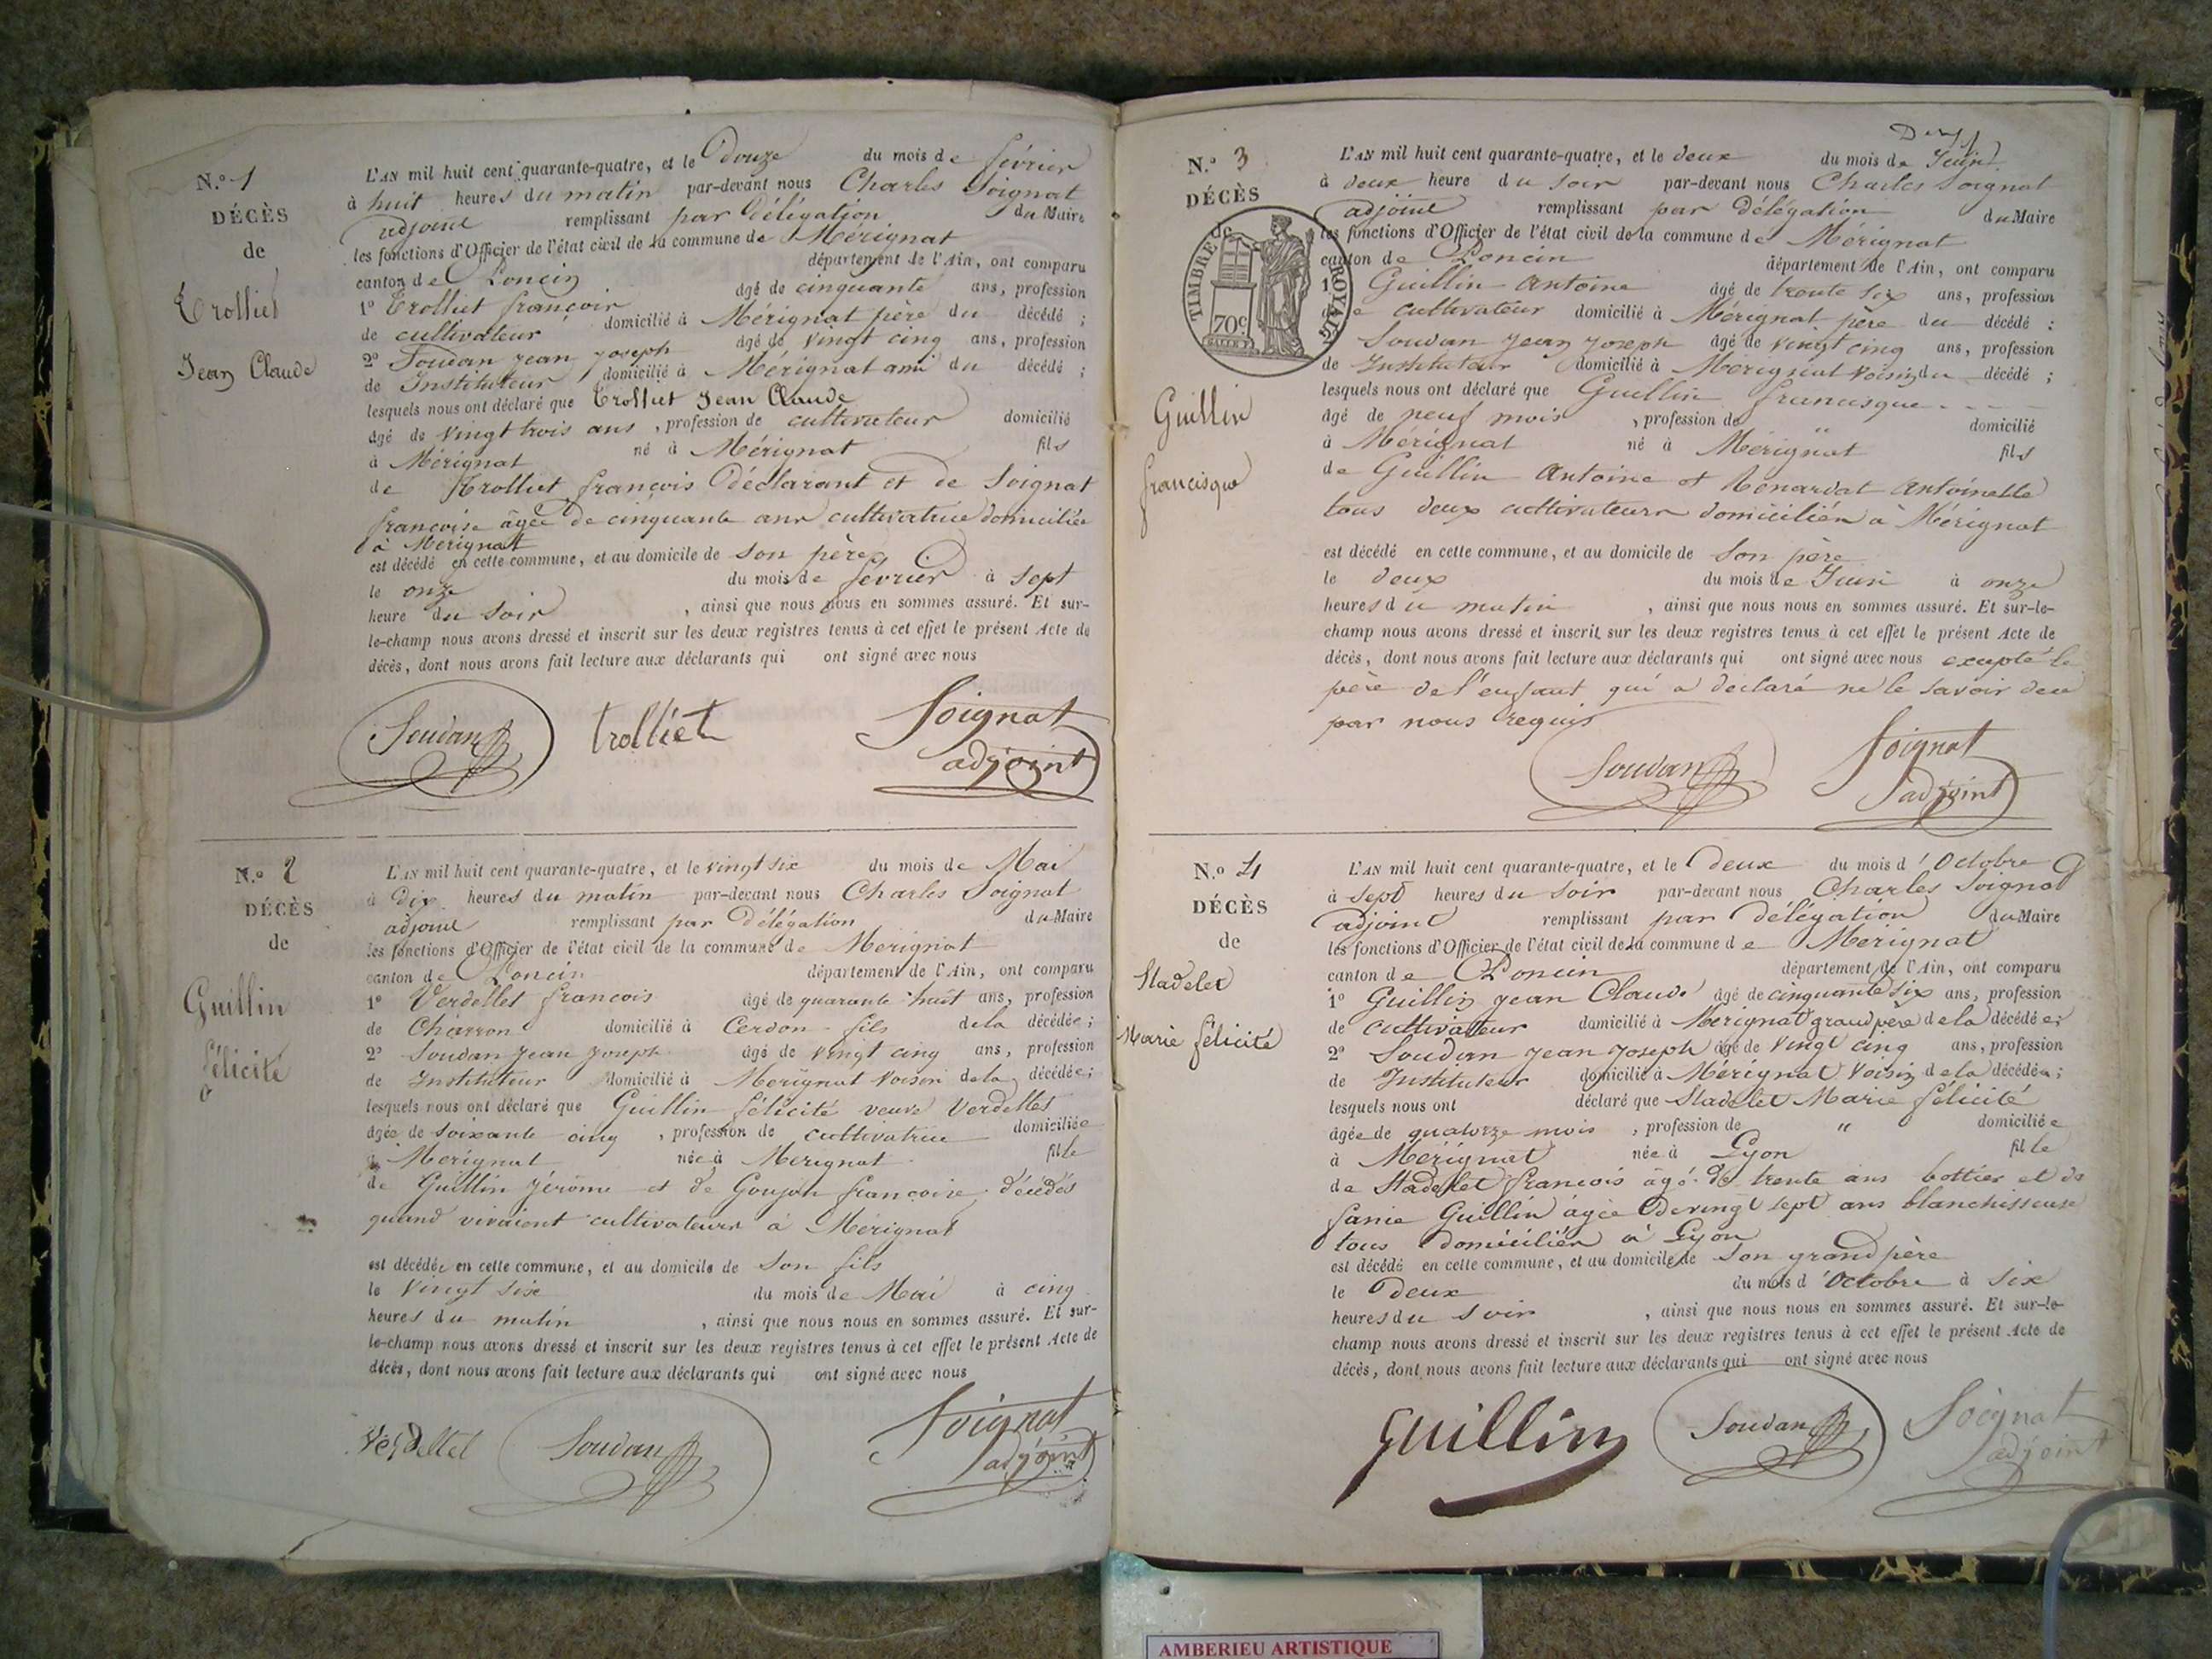 N.° 1
DÉCÈS
de
Trolliet
Jean Claude
L'AN mil huit cent quarante-quatre, et le Douze du mois de février
à huit heures du matin par-devant nous Charles Soignat
adjoint remplissant par Délégation du Maire
les fonctions d'Officier de l'état civil de la commune de Mérignat
canton de Poncin département de l'Ain, ont comparu
1° Trolliet françois âgé de cinquante ans, profession
de cultivateur domicilié à Mérignat père du décédé ;
2° Soudan jean joseph âgé de vingt cinq ans, profession
de Instituteur domicilié à Mérignat ami du décédé ;
lesquels nous ont déclaré que Trolliet Jean Claude
âgé de vingt trois ans , profession de cultivateur domicilié
à Mérignat né à Mérignat fils
de Trolliet françois Déclarant et de Soignat
françoise âgée de cinquante ans cultivatrice domiciliée
à Mérignat
est décédé en cette commune, et au domicile de son père
le onze du mois de février à sept
heure du soir , ainsi que nous nous en sommes assuré. Et sur-
le-champ nous avons dressé et inscrit sur les deux registres tenus à cet effet le présent Acte de
décès, dont nous avons fait lecture aux déclarants qui ont signé avec nous
Soudan trolliet Soignat
adjoint
N.° 2
DÉCÈS
de
Guillin
félicité
L'AN mil huit cent quarante-quatre, et le vingt six du mois de Mai
à Dix heures du matin par-devant nous Charles Soignat
adjoint remplissant par Délégation du Maire
les fonctions d'Officier de l'état civil de la commune de Merignat
canton de Poncin département de l'Ain, ont comparu
1° Verdellet francois âgé de quarante huit ans, profession
de Charron domicilié à Cerdon fils de la décédée ;
2° Soudan jean joseph âgé de vingt cinq ans, profession
de Instituteur domicilié à Merignat voisin de la décédée ;
lesquels nous ont déclaré que Guillin félicité veuve Verdellet
âgée de soixante cinq , profession de cultivatrice domiciliée
à Merignat née à Merignat fille
de Guillin jérôme et de Goujon françoise décédés
quand vivaient cultivateurs à Mérignat
est décédée en cette commune, et au domicile de son fils
le vingt six du mois de Mai à cinq
heures du matin , ainsi que nous nous en sommes assuré. Et sur-
le-champ nous avons dressé et inscrit sur les deux registres tenus à cet effet le présent Acte de
décès, dont nous avons fait lecture aux déclarants qui ont signé avec nous
Verdellet Soudan Soignat
adjoint
N.° 3
DÉCÈS
de
TIMBRE ROYAL
70c
Guillin
francisque
L'AN mil huit cent quarante-quatre, et le deux du mois de Juin
à deux heure du soir par-devant nous Charles Soignat
adjoint remplissant par délégation du Maire
les fonctions d'Officier de l'état civil de la commune de Mérignat
canton de Poncin département de l'Ain, ont comparu
1° Guillin Antoine âgé de trente six ans, profession
de cultivateur domicilié à Mérignat père du décédé ;
2° Soudan jean joseph âgé de vingt cinq ans, profession
de Instituteur domicilié à Mérignat voisin du décédé ;
lesquels nous ont déclaré que Guillin francisque
âgé de neuf mois , profession de " domicilié
à Mérignat né à Mérignat fils
de Guillin Antoine et Antoinette
tous deux cultivateurs domiciliés à Mérignat
est décédé en cette commune, et au domicile de son père
le deux du mois de Juin à onze
heures du matin , ainsi que nous nous en sommes assuré. Et sur-le-
champ nous avons dressé et inscrit sur les deux registres tenus à cet effet le présent Acte de
décès, dont nous avons fait lecture aux déclarants qui ont signé avec nous excepté le
père de l'enfant qui a declaré ne le savoir de ce
par nous requis
Soudan Soignat
adjoint
N.° 4
DÉCÈS
de
Stadelet
Marie félicité
L'AN mil huit cent quarante-quatre, et le Deux du mois d'Octobre
à sept heures du soir par-devant nous Charles Soignat
adjoint remplissant par délégation du Maire
les fonctions d'Officier de l'état civil de la commune de Mérignat
canton de Poncin département de l'Ain, ont comparu
1° Guillin jean Claude âgé de cinquante six ans, profession
de cultivateur domicilié à Merignat grand père de la décédée ;
2° Soudan jean joseph âgé de vingt cinq ans, profession
de Instituteur domicilié à Mérignat voisin de la décédée ;
lesquels nous ont déclaré que Stadelet Marie félicité
âgée de quatorze mois , profession de " domiciliée
à Mérignat née à Lyon fille
de Stadelet françois âgé de trente ans bottier et de
fanie Guillin âgée de vingt sept ans blanchisseuse
tous domiciliés à Lyon
est décédé en cette commune, et au domicile de son grand père
le Deux du mois d'Octobre à six
heures du soir , ainsi que nous nous en sommes assuré. Et sur-le-
champ nous avons dressé et inscrit sur les deux registres tenus à cet effet le présent Acte de
décès, dont nous avons fait lecture aux déclarants qui ont signé avec nous
Guillin Soudan Soignat
adjoint
AMBERIEU ARTISTIQUE